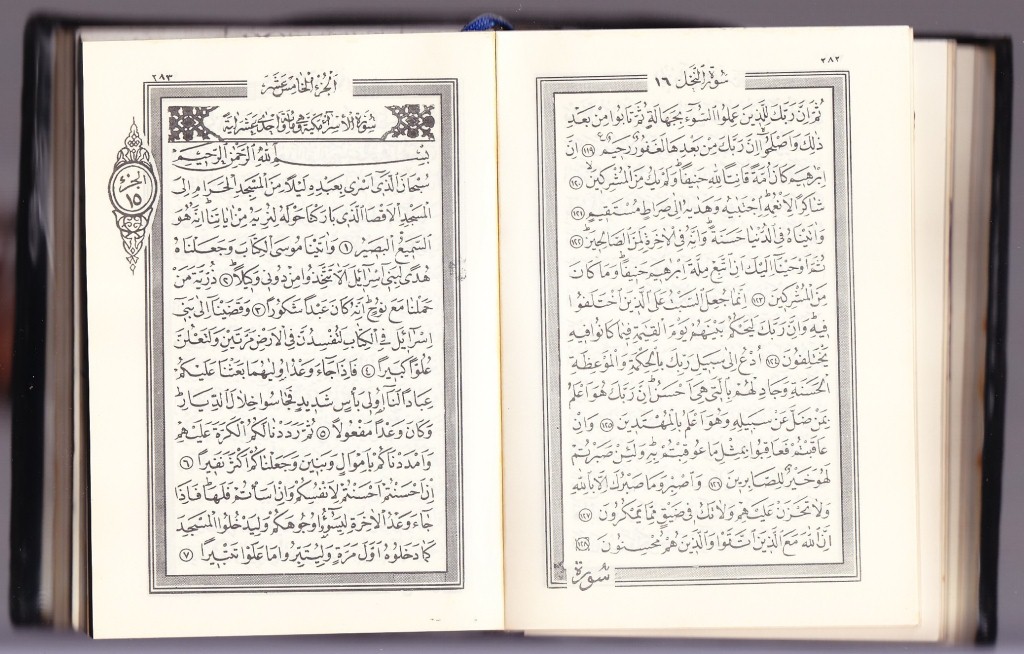 ٢٨٢
سورة النحل ١٦
ثم ان ربك للذين عملوا السوء بجهالة ثم تابوا من بعد
ذلك واصلحوا ان ربك من بعدها لغفور رحيم ١١٩ ان
ابرهيم كان امة قانتا لله حنيفا ولم يك من المشركين ١٢٠
شاكرا لانعمه اجتبيه وهديه الى صراط مستقيم ١٢١
واتيناه في الدنيا حسنة وانه في الاخرة لمن الصالحين ١٢٢
ثم اوحينا اليك ان اتبع ملة ابرهيم حنيفا وما كان
من المشركين ١٢٣ انما جعل السبت على الذين اختلفوا
فيه وان ربك ليحكم بينهم يوم القيمة فيما كانوا فيه
يختلفون ١٢٤ ادع الى سبيل ربك بالحكمة والموعظة
الحسنة وجادلهم بالتي هي احسن ان ربك هو اعلم
بمن ضل عن سبيله وهو اعلم بالمهتدين ١٢٥ وان
عاقبتم فعاقبوا بمثل ما عوقبتم به ولئن صبرتم
لهو خير للصابرين ١٢٦ واصبر وما صبرك الا بالله
ولا تحزن عليهم ولا تك في ضيق مما يمكرون ١٢٧
ان الله مع الذين اتقوا والذين هم محسنون ١٢٨
سورة
٢٨٣
الجزء الخامس عشر
سورة الاسراء مكية وهي مائة واحدى عشرة اية
بسم الله الرحمن الرحيم
سبحان الذي اسرى بعبده ليلا من المسجد الحرام الى
المسجد الاقصا الذي باركنا حوله لنريه من اياتنا انه هو
السميع البصير ١ واتينا موسى الكتاب وجعلناه
هدى لبني اسرائيل الا تتخذوا من دوني وكيلا ٢ ذرية من
حملنا مع نوح انه كان عبدا شكورا ٣ وقضينا الى بني
اسرائيل في الكتاب لتفسدن في الارض مرتين ولتعلن
علوا كبيرا ٤ فاذا جاء وعد اوليهما بعثنا عليكم
عبادا لنا اولي بأس شديد فجاسوا خلال الديار
وكان وعدا مفعولا ٥ ثم رددنا لكم الكرة عليهم
وامددناكم باموال وبنين وجعلناكم اكثر نفيرا ٦
ان احسنتم احسنتم لانفسكم وان اسأتم فلها فاذا
جاء وعد الاخرة ليسوؤا وجوهكم وليدخلوا المسجد
كما دخلوه اول مرة وليتبروا ما علوا تتبيرا ٧
الجزء
١٥